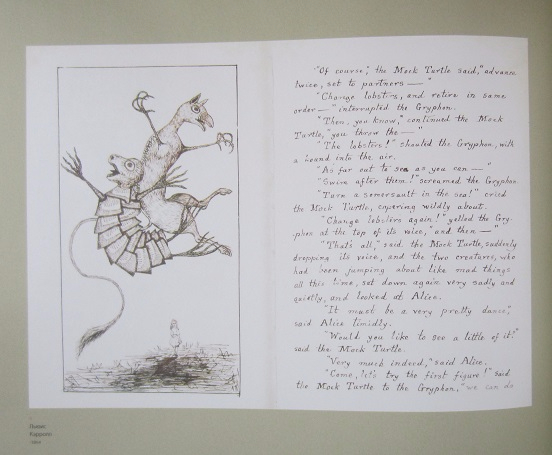 "Of course," the Mock Turtle said, "advance
twice, set to partners —"
"Change lobsters, and retire in same
order —" interrupted the Gryphon.
"Then, you know," continued the Mock
Turtle, "you throw the —"
"The lobsters!" shouted the Gryphon, with
a bound into the air.
"As far out to sea as you can —"
"Swim after them!" screamed the Gryphon.
"Turn a somersault in the sea!" cried
the Mock Turtle, capering wildly about.
"Change lobsters again!" yelled the Gry-
phon at the top of its voice, "and then —"
"That's all," said the Mock Turtle, suddenly
dropping its voice, and the two creatures, who
had been jumping about like mad things
all this time, sat down again very sadly and
quietly, and looked at Alice.
"It must be a very pretty dance,"
said Alice timidly.
"Would you like to see a little of it?"
said the Mock Turtle.
"Very much indeed," said Alice.
"Come, let's try the first figure!" said
the Mock Turtle to the Gryphon, "we can do
Льюис
Кэрролл